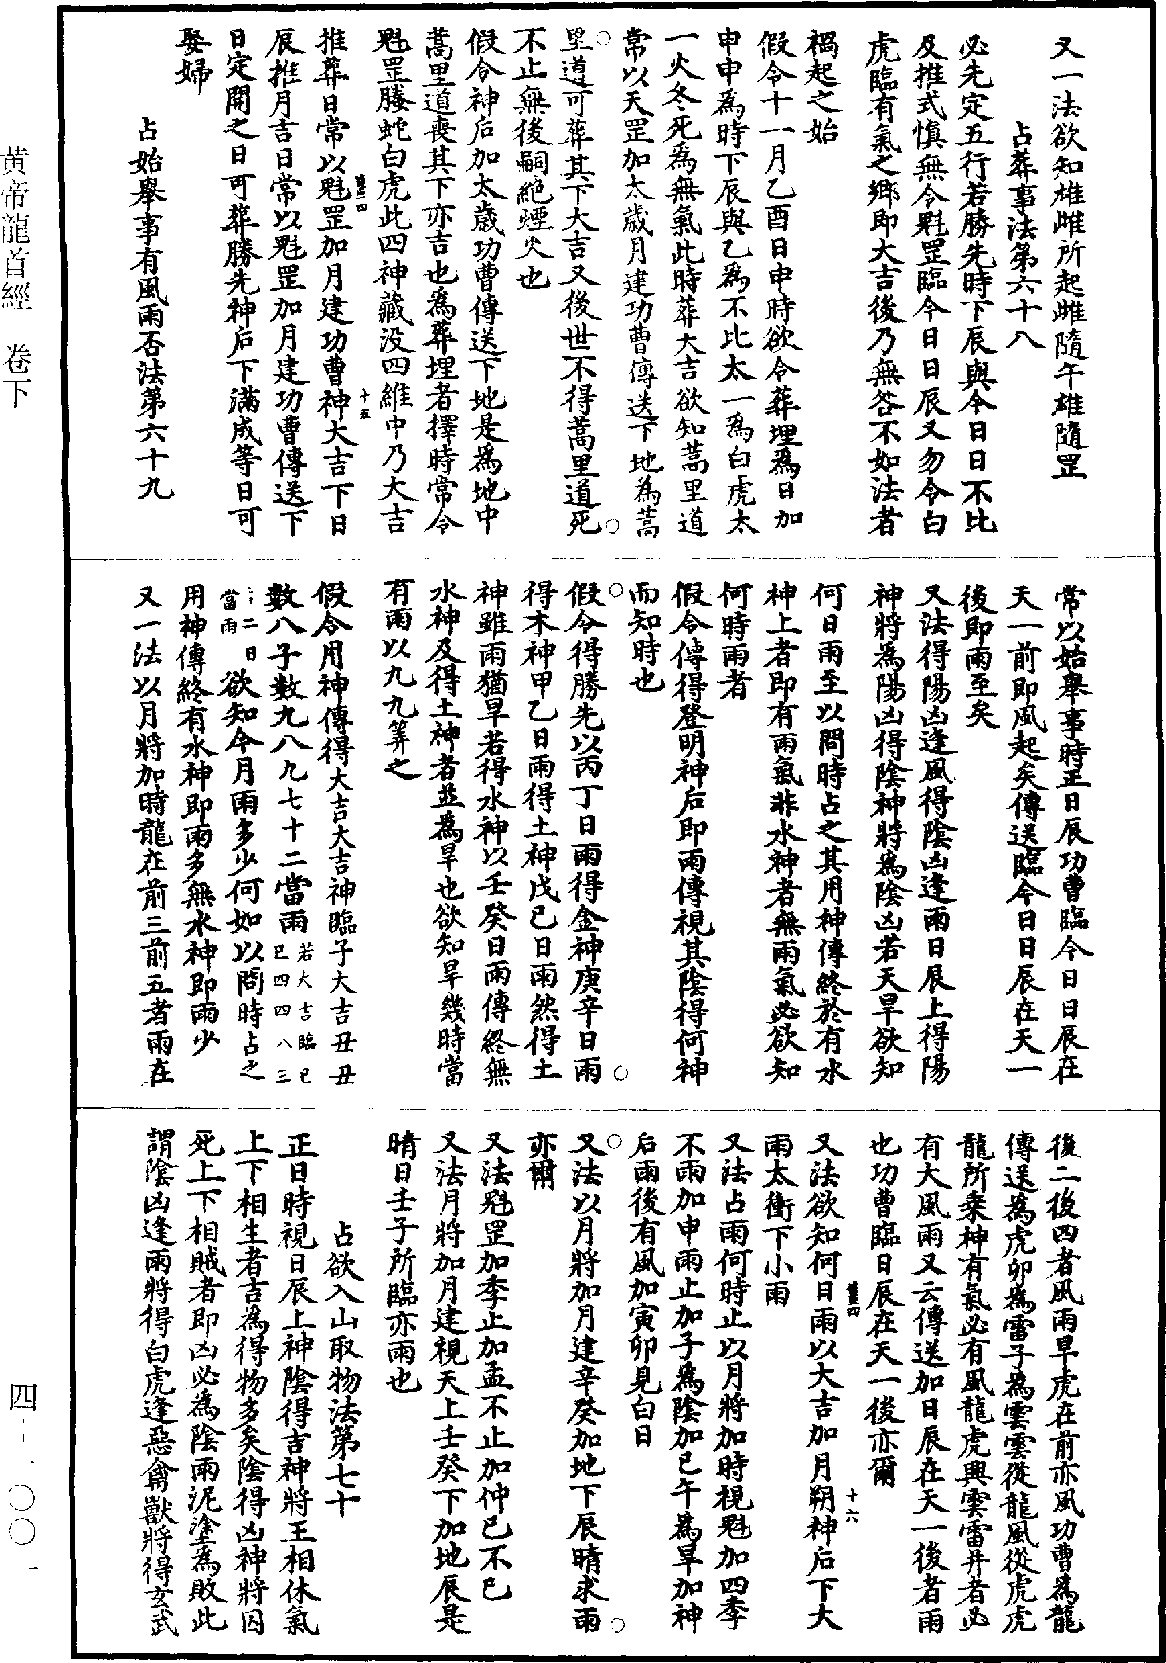 又一法欲知雄雌所起雌隨午雄隨罡
占葬事法第六十八
必先定五行若勝先時下辰與今日日不比
及推式慎無令魁罡臨今日日辰又勿令白
虎臨有氣之鄉即大吉後乃無咎不如法者
禍起之始
假令十一月乙酉日申時欲令葬埋為日加
申申為時下辰與乙為不比太一為白虎太
一火冬死為無氣此時葬大吉欲知蒿里道
常以天罡加太歲月建功曹傳送下地為蒿
里道可葬其下大吉又後世不得蒿里道死
不止無後嗣絕煙火也
假令神后加太歲功曹傳送下地是為地中
蒿里道喪其下亦吉也為葬埋者擇時常令
魁罡螣蛇白虎此四神藏沒四維中乃大吉
推葬日常以魁罡加月建功曹神大吉下日
十五
辰推月吉日常以魁罡加月建功曹傳送下
日定開之日可葬勝先神后下滿成等日可
娶婦
占始舉事有風雨否法第六十九
常以始舉事時正日辰功曹臨今日日辰在
天一前即風起矣傳送臨今日日辰在天一
後即雨至矣
又法得陽凶逢風得陰凶逢雨日辰上得陽
神將為陽凶得陰神將為陰凶若天旱欲知
何日雨至以問時占之其用神傳終於有水
神上者即有雨氣非水神者無雨氣必欲知
何時雨者
假令傳得登明神后即雨傳視其陰得何神
而知時也
假令得勝先以丙丁日雨得金神庚辛日雨
得木神甲乙日雨得土神戊己日雨然得土
神雖雨猶旱若得水神以壬癸日雨傳終無
水神及得土神者並為旱也欲知旱幾時當
有雨以九九筭之
假令用神傳得大吉大吉神臨子大吉丑丑
數八子數九八九七十二當雨若大吉臨巳巳四四八三
十二日當雨欲知今月雨多少何如以問時占之
用神傳終有水神即雨多無水神即雨少
又一法以月將加時龍在前三前五者雨在
後二後四者風雨旱虎在前亦風功曹為龍
傳送為虎卯為雷子為雲雲從龍風從虎虎
龍所乘神有氣必有風龍虎興雲雷并者必
有大風雨又云傳送加日辰在天一後者雨
也功曹臨日辰在天一後亦爾
又法欲知何日雨以大吉加月朔神后下大
十六
雨太衝下小雨
又法占雨何時止以月將加時視魁加四季
不雨加申雨止加子為陰加巳午為旱加神
后雨後有風加寅卯見白日
又法以月將加月建辛癸加地下辰晴求雨
亦爾
又法魁罡加季止加孟不止加仲巳不巳
又法月將加月建視天上壬癸下加地辰是
晴日壬子所臨亦雨也
占欲入山取物法第七十
正日時視日辰上神陰得吉神將王相休氣
上下相生者吉為得物多矣陰得凶神將囚
死上下相賊者即凶必為陰雨泥塗為敗此
謂陰凶逢雨將得白虎逢惡禽獸將得玄武
黄帝龍首經 卷下